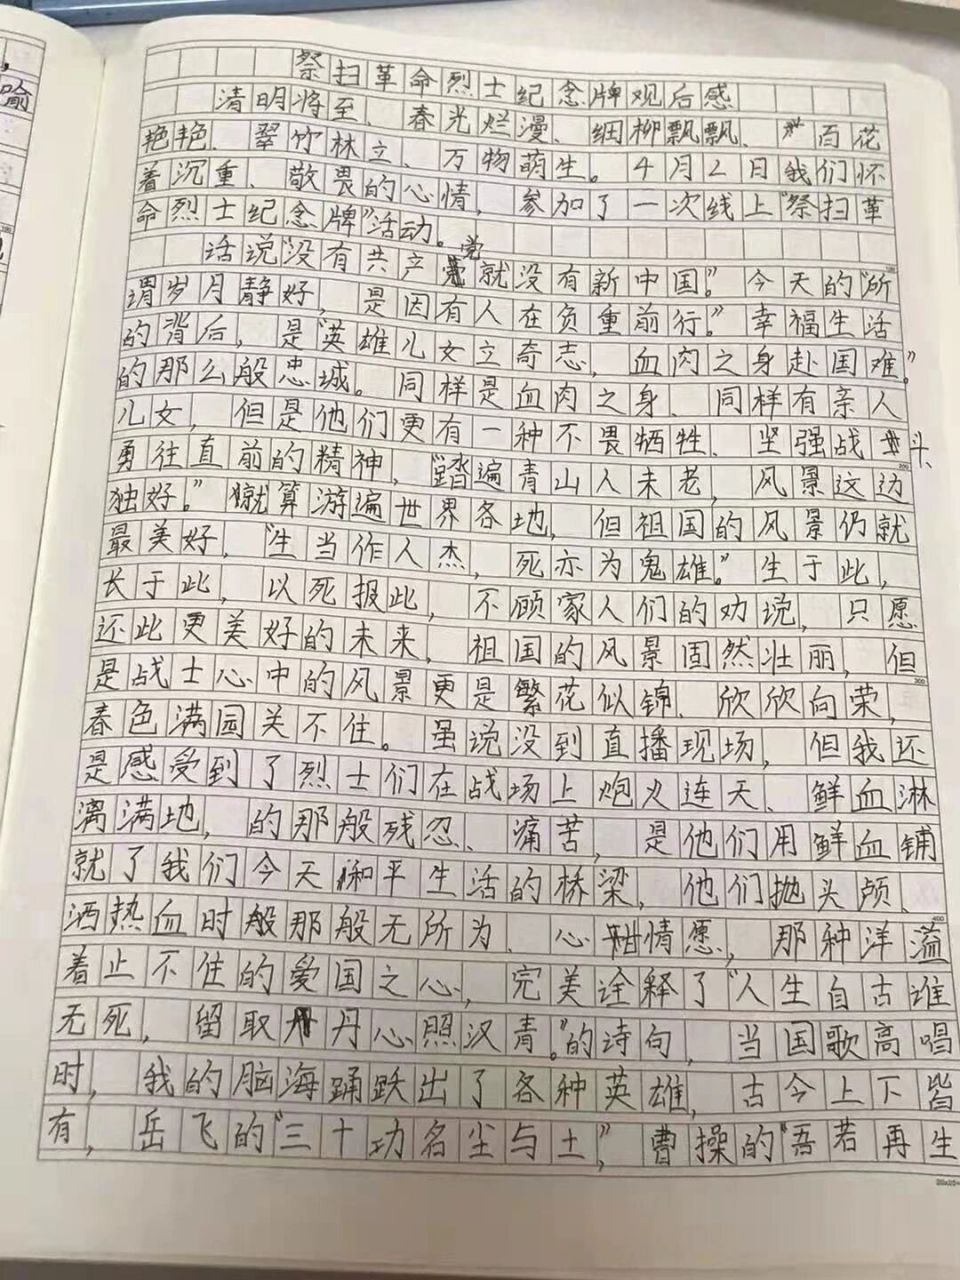 喻
祭扫革命烈士纪念牌观后感
清明将至、春光烂漫、细柳飘飘、百花
艳艳、翠竹林立、万物萌生。4月2日我们怀
着沉重、敬畏的心情，参加了一次线上“祭扫革
命烈士纪念牌”活动。
话说“没有共产党就没有新中国。”今天的“所
谓岁月静好，是因有人在负重前行。”幸福生活
的背后，是“英雄儿女立奇志，血肉之身赴国难。”
的那么般忠城。同样是血肉之身、同样有亲人
儿女，但是他们更有一种不畏牺牲、坚强战斗、
勇往直前的精神，“踏遍青山人未老，风景这边
独好。”就算游遍世界各地，但祖国的风景仍就
最美好，“生当作人杰，死亦为鬼雄。”生于此，
长于此，以死报此，不顾家人们的劝说，只愿
还此更美好的未来，祖国的风景固然壮丽，但
是战士心中的风景更是繁花似锦、欣欣向荣，
春色满园关不住。虽说没到直播现场，但我还
是感受到了烈士们在战场上炮火连天、鲜血淋
漓满地，的那般残忍、痛苦，是他们用鲜血铺
就了我们今天和平生活的桥梁，他们抛头颅、
洒热血时般那般无所为、心甘情愿，那种洋溢
着止不住的爱国之心，完美诠释了“人生自古谁
无死，留取丹心照汉青。”的诗句，当国歌高唱
时，我的脑海踊跃出了各种英雄，古今上下皆
有，岳飞的“三十功名尘与土，”曹操的“吾若再生